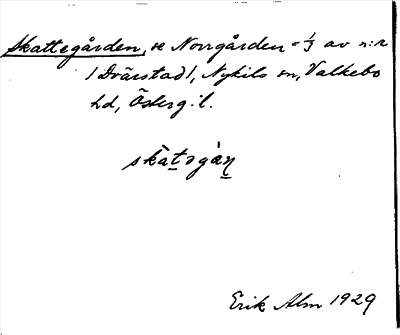 Skattegården, se Norrgården = 1/3 av n:r
1 Drärstad 1, Nykils sn, Valkebo
hd, Österg:l.
skàt̲əgàn̲
Erik Alm 1929